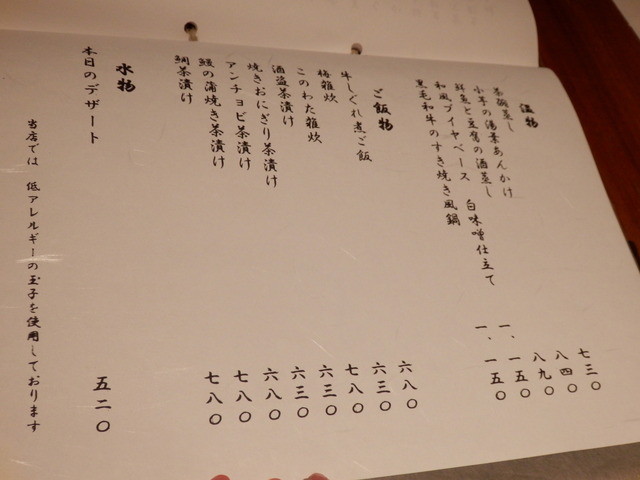 温物
茶碗蒸し 七三〇
小芋の湯葉あんかけ 八四〇
鮮魚と豆腐の酒蒸し 八九〇
和風ブイヤベース 白味噌仕立て 一、一五〇
黒毛和牛のすき焼き風鍋 一、一五〇
ご飯物
牛しぐれ煮ご飯 六八〇
梅雑炊 六三〇
このわた雑炊 七八〇
酒盗茶漬け 六三〇
焼きおにぎり茶漬け 六三〇
アンチョビ茶漬け 六八〇
鰻の蒲焼き茶漬け 七八〇
鯛茶漬け 七八〇
水物
本日のデザート 五二〇
当店では 低アレルギーの玉子を使用しております